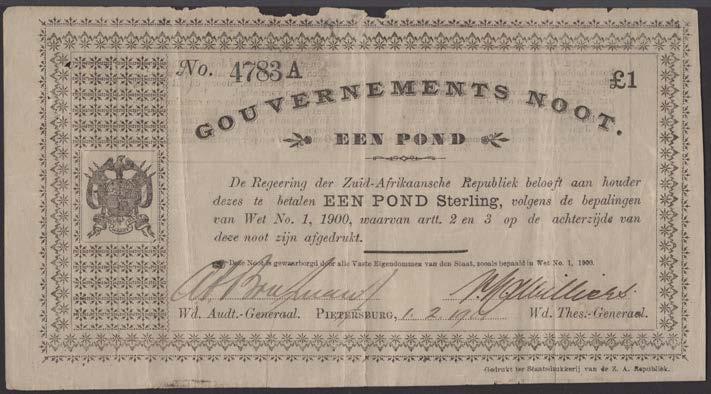 No. 4783 A £1
GOUVERNEMENTS NOOT.
EEN POND
De Regeering der Zuid-Afrikaansche Republiek belooft aan houder
dezes te betalen EEN POND Sterling, volgens de bepalingen
van Wet No. 1, 1900, waarvan artt. 2 en 3 op de achterzijde van
deze noot zijn afgedrukt.
Deze Noot is gewaarborgd door alle Vaste Eigendommen van den Staat, zooals bepaald in Wet No. 1, 1900.
Wd. Audt.-Generaal. PIETERSBURG, 1. 2. Wd. Thes.-Generaal.
Gedrukt ter Staatsdrukkerij van de Z. A. Republiek.